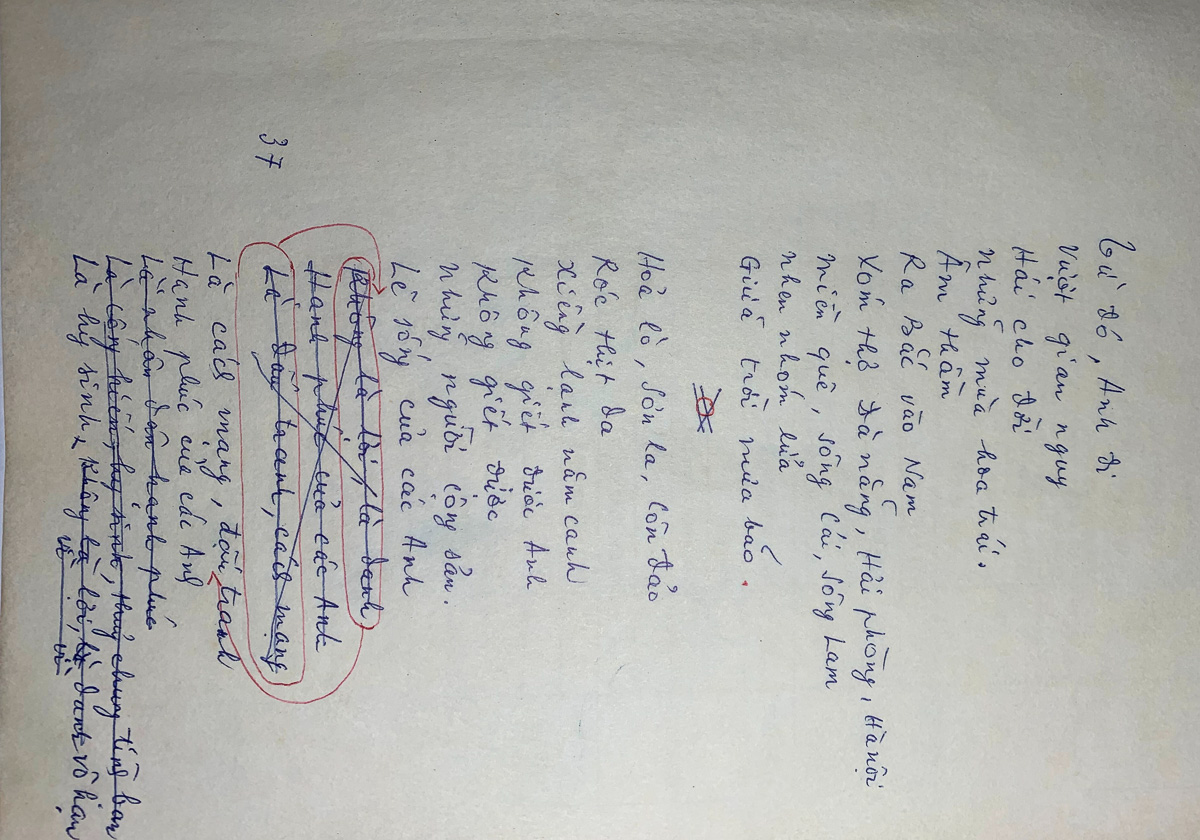 Từ đó, Anh đi
Vượt gian nguy
Hái cho đời
Những mùa hoa trái.
Âm thầm
Ra Bắc vào Nam
Xóm thợ Đà nẵng, Hải phòng, Hà nội
Miền quê, Sông Cái, Sông Lam
Nhen nhóm lửa
Giữa trời mưa bão.
Hoả lò, Sơn la, Côn đảo
Róc thịt da
Xiềng lạnh năm canh
Không giết được Anh
Không giết được
Những người cộng sản.
Lẽ sống của các Anh
Không là lời, là danh
Hạnh phúc của các Anh
Là đấu tranh, cách mạng
37
Là cách mạng, đấu tranh
Hạnh phúc của các Anh
Là nhân dân hạnh phúc
Là cống hiến, hy sinh, thuỷ chung tình bạn
Là hy sinh, không là lợi, là danh vô hạn
vì vì